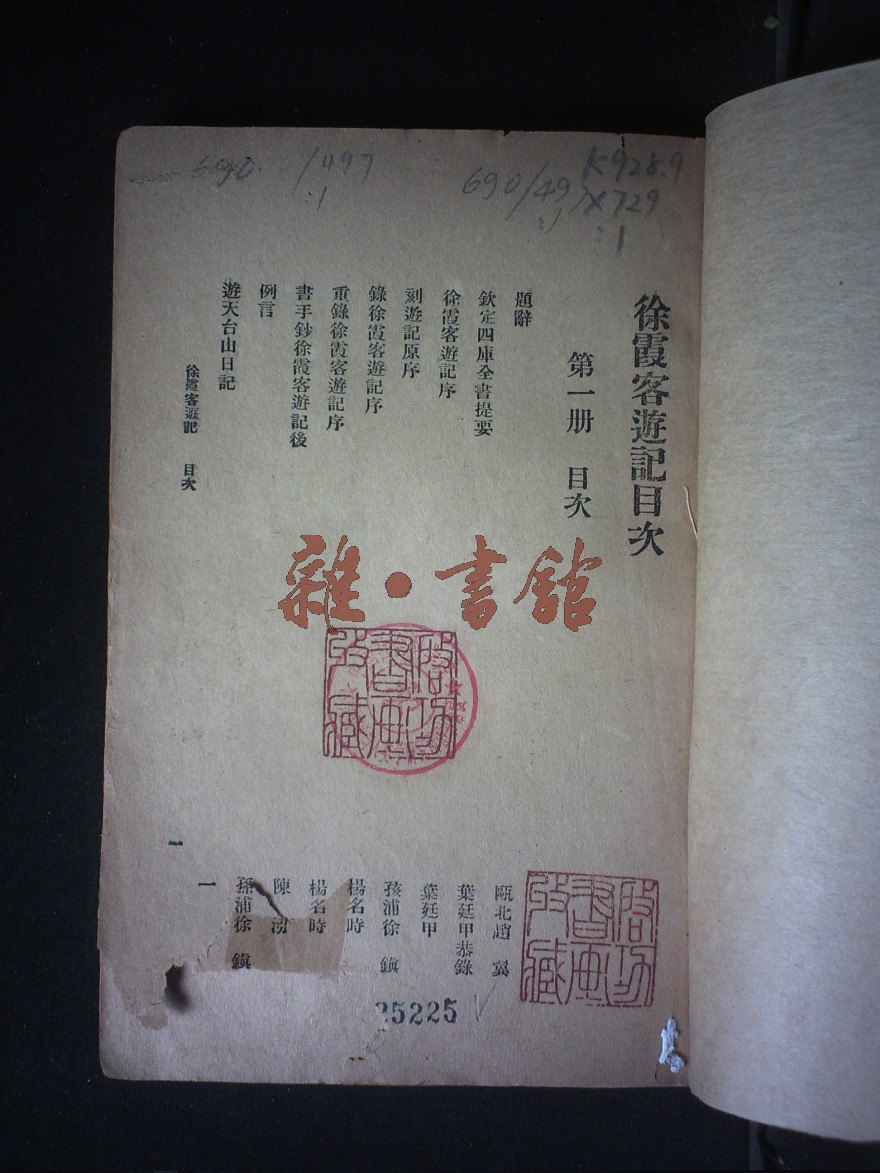 690 /497
:1
690/49
:1
K928.9
X729
:1
徐霞客遊記目次
第一册 目次
題辭 甌北趙 翼
欽定四庫全書提要 葉廷甲恭錄
徐霞客遊記序 葉廷甲
刻遊記原序 孩浦徐 鎮
錄徐霞客遊記序 楊名時
重錄徐霞客遊記序 楊名時
書手鈔徐霞客遊記後 陳 泓
例言 孫浦徐 鎮
遊天台山日記 一
徐霞客遊記 目次 一
雜·書館
啟功書画收藏
啟功書画收藏
25225